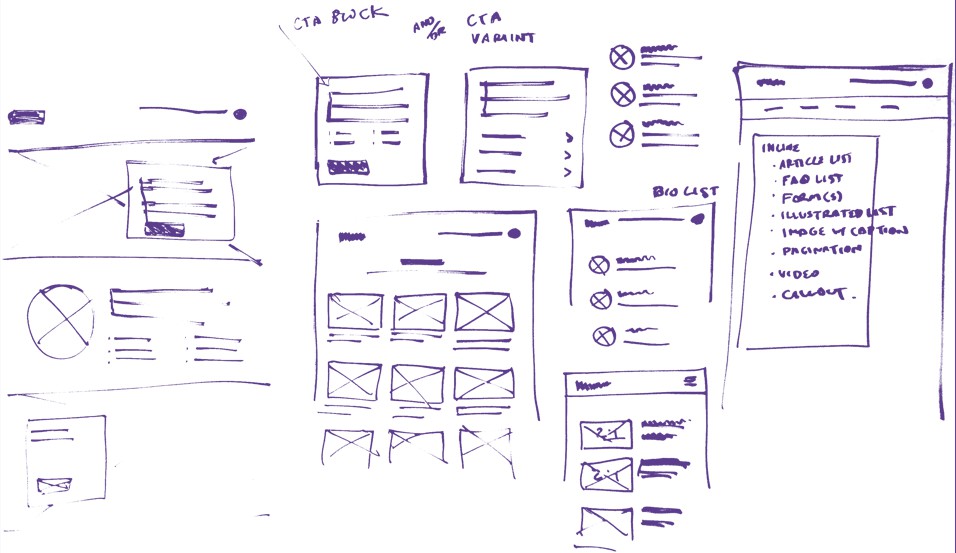 CTA BLOCK
AND/OR
CTA
VARIANT
BIO LIST
INLINE
· ARTICLE LIST
· FAQ LIST
· FORM(S)
· ILLUSTRATED LIST
· IMAGE W CAPTION
· PAGINATION
· VIDEO
· CALLOUT.
2:1
2:1